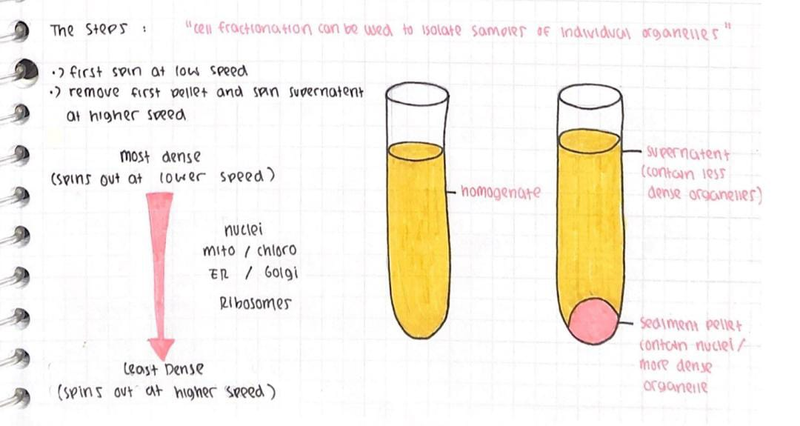 The Steps :
"cell fractionation can be used to isolate samples of individual organelles"
·> first spin at low speed
·> remove first pellet and spin supernatent
at higher speed
most dense
(spins out at lower speed)
nuclei
mito / chloro
ER / Golgi
Ribosomes
Least Dense
(spins out at higher speed)
homogenate
supernatent
(contain less
dense organelles)
sediment pellet
(contain nuclei/
more dense
organelle